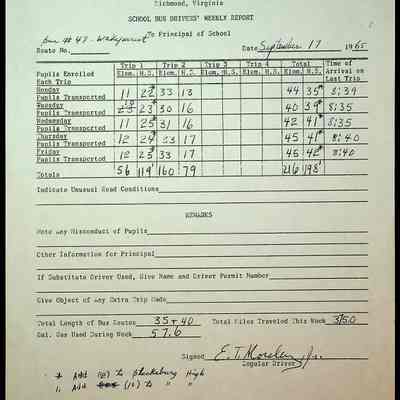 Richmond, Virginia
SCHOOL BUS DRIVERS' WEEKLY REPORT
To Principal of School
Bus # 47 - Wakefield
Route No. Date September 17 1965
Trip 1 Trip 2 Trip 3 Trip 4 Total Time of Arrival on Last Trip
Pupils Enrolled Each Trip Elem. H.S. Elem. H.S. Elem. H.S. Elem. H.S. Elem. H.S.
Monday
Pupils Transported 11 33 13 44 35* 8:39
Tuesday
Pupils Transported 23* 30 16 40 39* 8:35
Wednesday
Pupils Transported 11 25* 31 16 42 41* 8:35
Thursday
Pupils Transported 12 24* 33 17 45 41* 8:40
Friday
Pupils Transported 12 25* 33 17 45 42* 8:40
Totals 56 119 160 79 216 198
Indicate Unusual Road Conditions
REMARKS
Note any Misconduct of Pupils
Other Information for Principal
If Substitute Driver Used, Give Name and Driver Permit Number
Give Object of any Extra Trip Made
Total Length of Bus Routes 35+40 Total Miles Traveled This Week 375.0
Gal. Gas Used During Week 57.6
Signed E. T. Jr.
Regular Driver
* Add (8) to Blacksburg High
1, Add (10) to " "